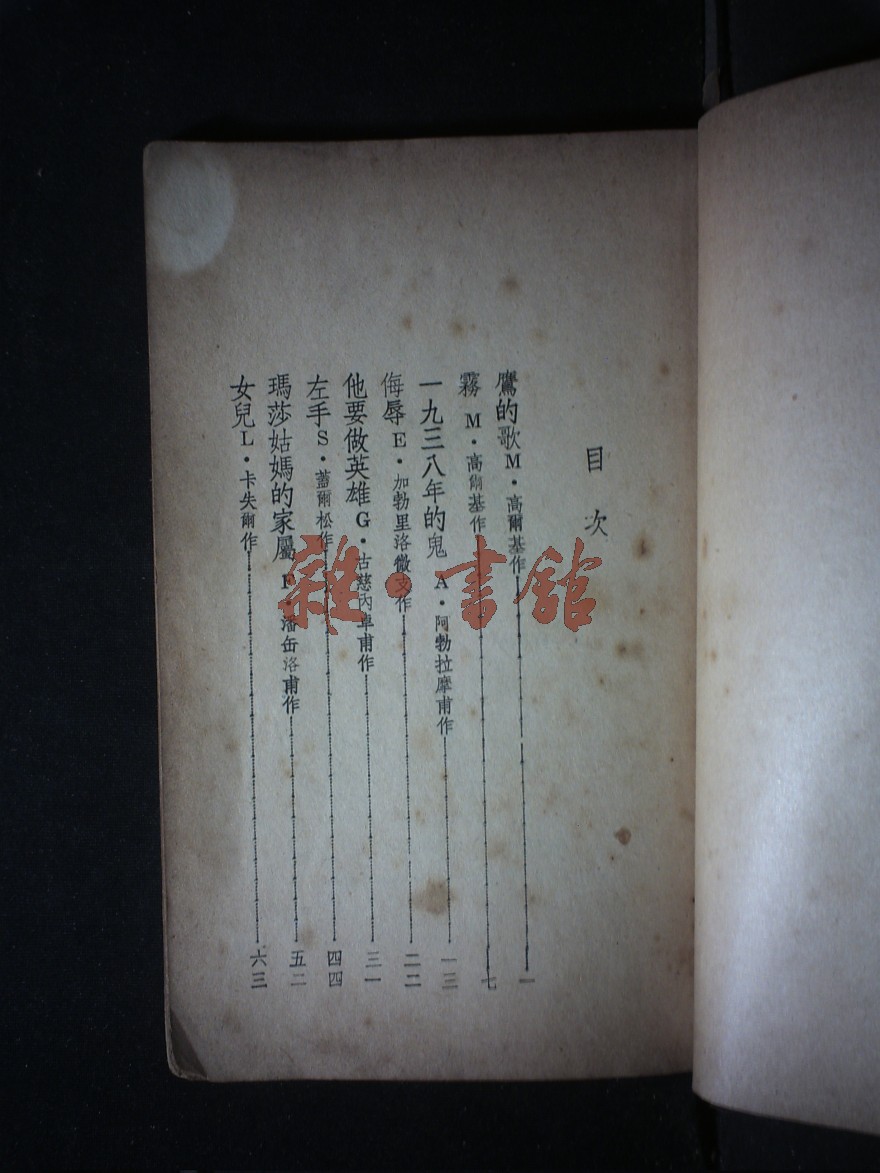 目次
鷹的歌 M·高爾基作 一
霧 M·高爾基作 七
一九三八年的鬼 A·阿勃拉摩甫作 一三
侮辱 E·加勃里洛微支作 二二
他要做英雄 G·古慈內卓甫作 三一
左手 S·蓋爾松作 四四
瑪莎姑媽的家屬 F·潘缶洛甫作 五二
女兒 L·卡失爾作 六三
雜·書館